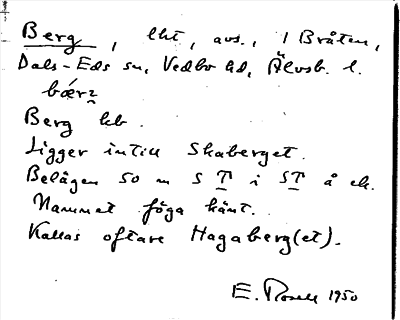 Berg, lht, avs., i Bråten,
Dals-Eds sn, Vedbo hd, Älvsb. l.
Berg kb.
Ligger intill Skaberget.
Belägen 50 m S T i ST å ek.
Namnet föga känt.
Kallas oftare Hagaberg(et).
E. Rosell 1950